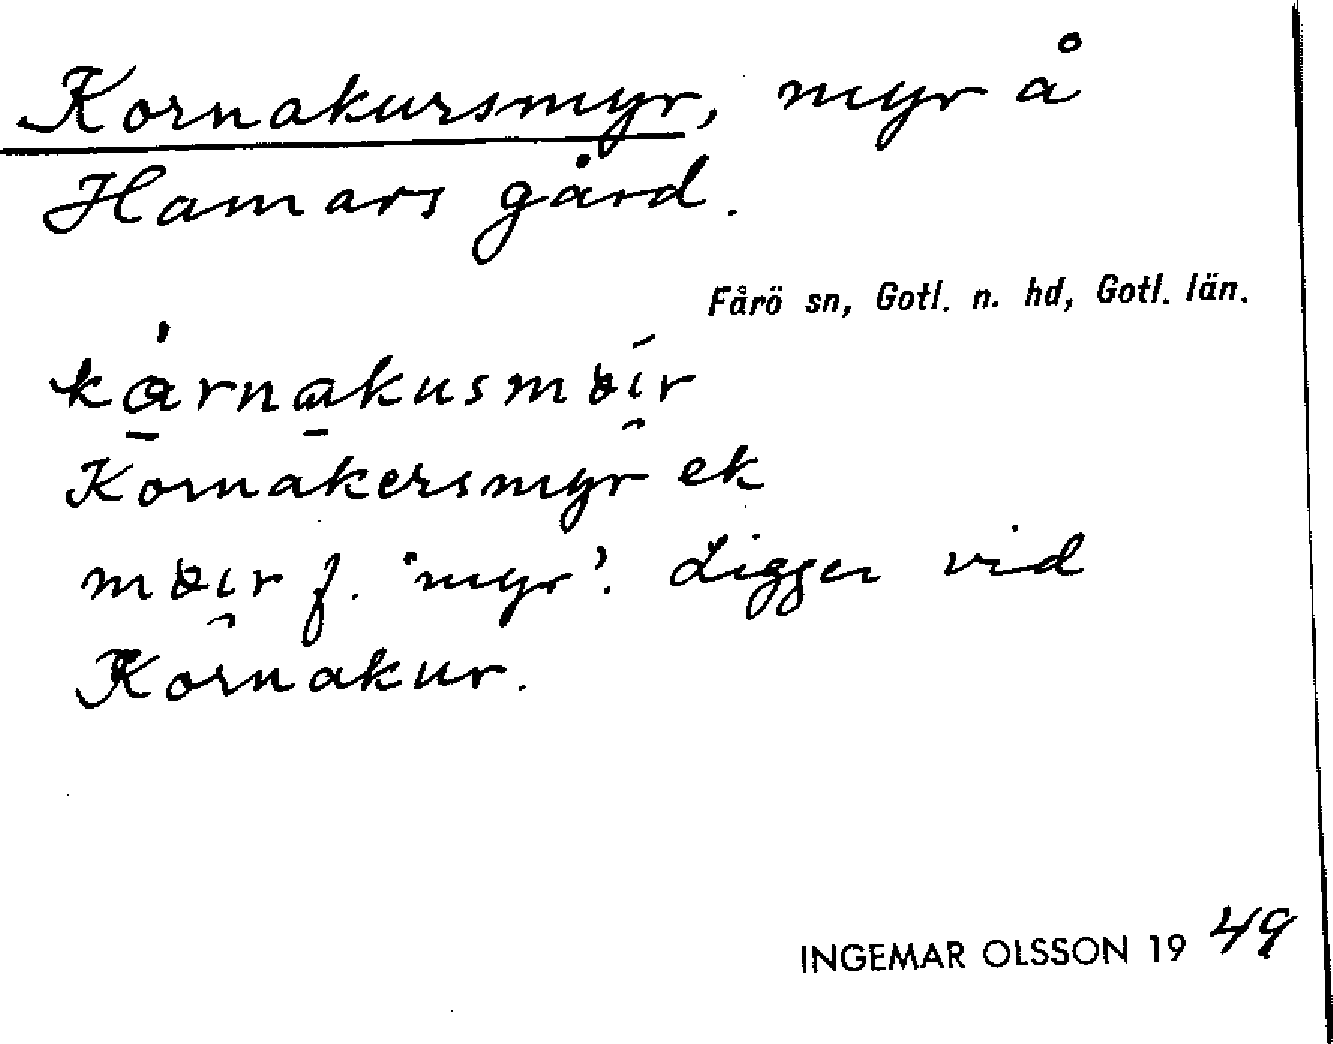 Kornakursmyr, myr å
Hamars gård.
Fårö sn, Gotl. n. hd, Gotl. län.
Kornakersmyr ek
f. 'myr'. Ligger vid
Kornakur.
INGEMAR OLSSON 1949